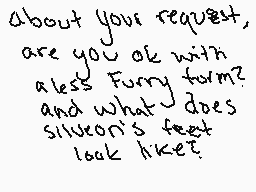 about your request,
are you ok with
a less furry form?
and what does
silveon's feet
look like?